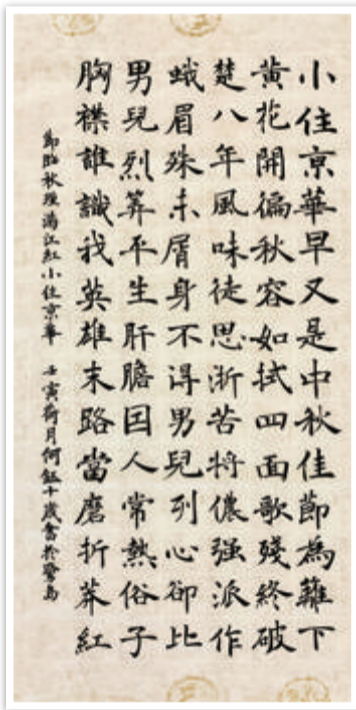 小住京華早又是中秋佳節為籬下
黄花開徧秋容如拭四面歌殘終破
楚八年風味徒思浙苦將儂强派作
蛾眉殊未屑身不得男兒列心卻比
男兒烈筭平生肝膽因人常熱俗子
胸襟誰識我英雄末路當磨折莽紅
節臨秋瑾满江紅小住京華 壬寅荷月何鈺十歲書於鷺島